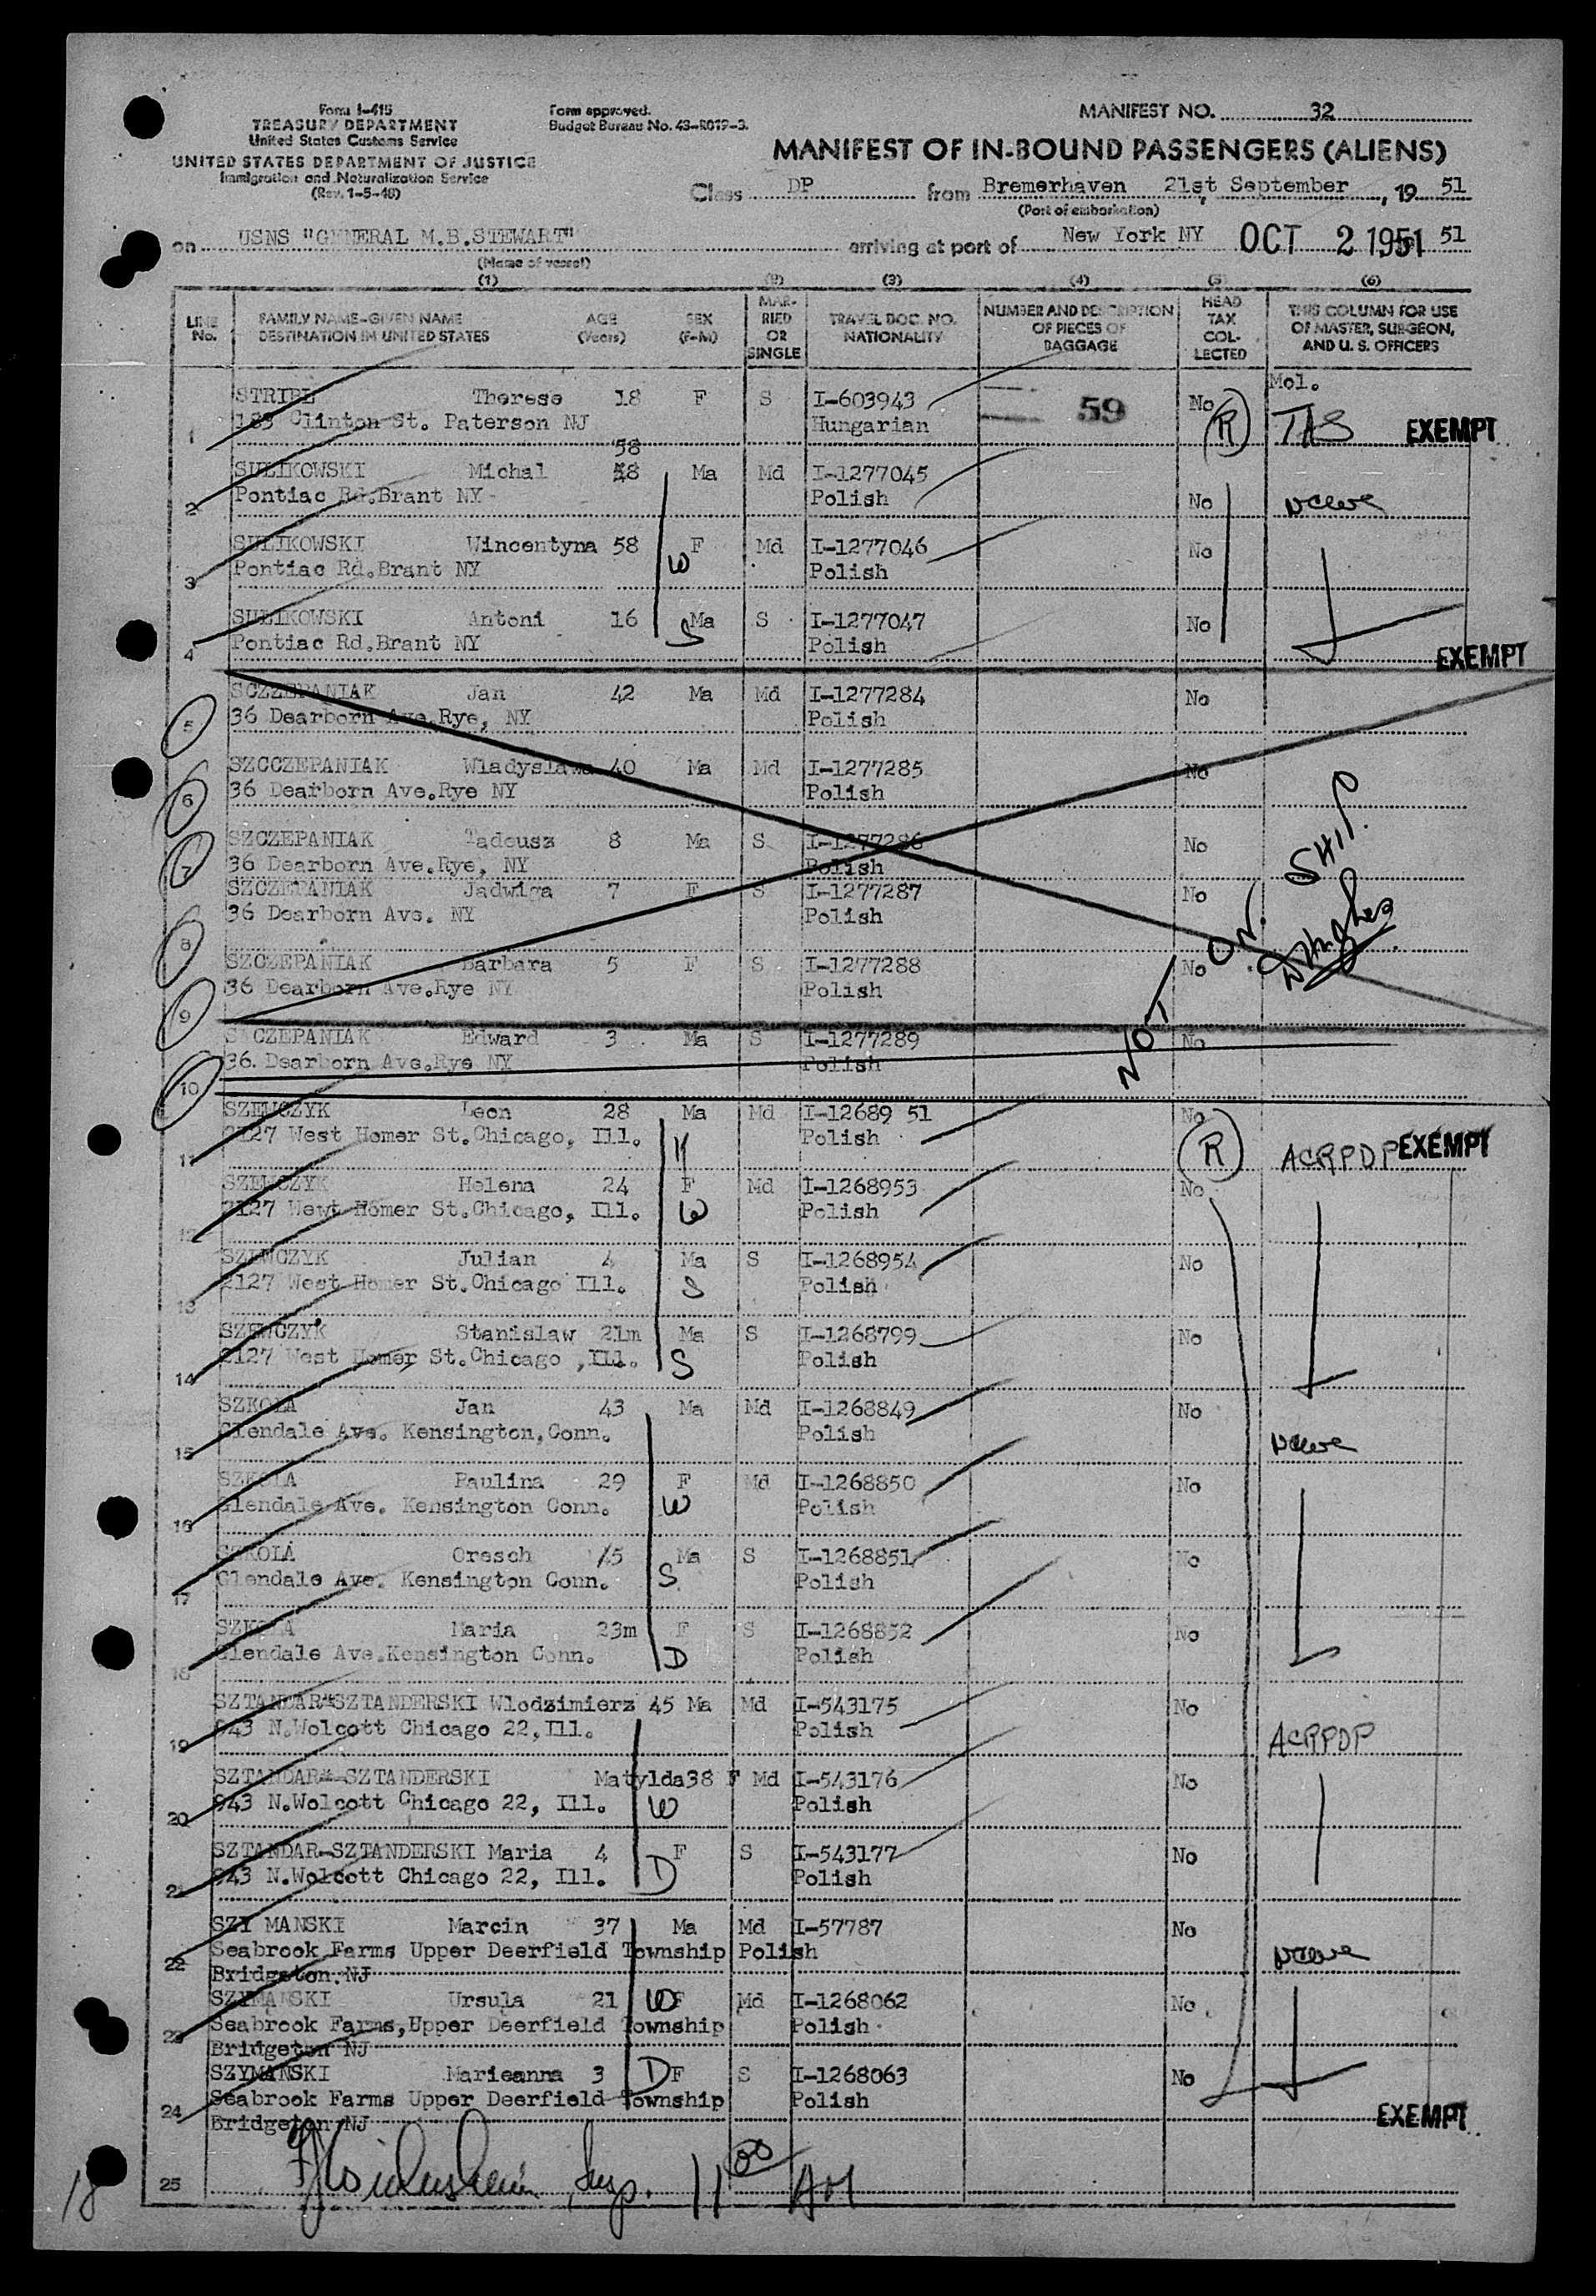 Form I-415
TREASURY DEPARTMENT
United States Customs Service
UNITED STATES DEPARTMENT OF JUSTICE
Immigration and Naturalization Service
(Rev. 1-5-48)
Form approved.
Budget Bureau No. 43-R019-3.
MANIFEST NO. 32
MANIFEST OF IN-BOUND PASSENGERS (ALIENS)
Class DP from Bremerhaven 21st September, 19 51
(Port of embarkation)
on USNS "GENERAL M.B.STEWART" arriving at port of New York NY OCT 2 1951 51
(Name of vessel)
(1) (2) (3) (4) (5) (6)
LINE No. FAMILY NAME-GIVEN NAME DESTINATION IN UNITED STATES AGE (Years) SEX (F-M) MARRIED OR SINGLE TRAVEL DOC. NO. NATIONALITY NUMBER AND DESCRIPTION OF PIECES OF BAGGAGE HEAD TAX COLLECTED THIS COLUMN FOR USE OF MASTER, SURGEON, AND U. S. OFFICERS
Mol.
STRIBL Therese 18 F S I-603943 59 No R TAS EXEMPT
1 183 Clinton St. Paterson NJ Hungarian
58
SULIKOWSKI Michal 48 Ma Md I-1277045
2 Pontiac Rd.Brant NY Polish No
SULIKOWSKI Wincentyna 58 F Md I-1277046 No
3 Pontiac Rd.Brant NY W Polish
SULIKOWSKI Antoni 16 Ma S I-1277047 No
4 Pontiac Rd.Brant NY S Polish EXEMPT
SCZZEPANIAK Jan 42 Ma Md I-1277284 No
5 36 Dearborn Ave.Rye, NY Polish
SZCCZEPANIAK Wladyslawa 40 Ma Md I-1277285 No
6 36 Dearborn Ave.Rye NY Polish
SZCZEPANIAK Tadeusz 8 Ma S I-1277286 No
7 36 Dearborn Ave.Rye, NY Polish
SZCZEPANIAK Jadwiga 7 F S I-1277287 No
8 36 Dearborn Ave. NY Polish
SZCZEPANIAK Barbara 5 F S I-1277288 No
9 36 Dearborn Ave.Rye NY Polish
NOT ON SHIP.
SZCZEPANIAK Edward 3 Ma S I-1277289 No
10 36. Dearborn Ave.Rye NY Polish
SZEWCZYK Leon 28 Ma Md I-12689 51 No
11 2127 West Homer St.Chicago, Ill. H Polish R ACRPDP EXEMPT
SZEWCZYK Helena 24 F Md I-1268953 No
12 2127 Wewt Homer St.Chicago, Ill. W Polish
SZEWCZYK Julian 4 Ma S I-1268954 No
13 2127 West Homer St.Chicago Ill. S Polish
SZEWCZYK Stanislaw 21m Ma S I-1268799 No
14 2127 West Homer St.Chicago ,Ill. S Polish
SZKOLA Jan 43 Ma Md I-1268849 No
15 Glendale Ave. Kensington,Conn. Polish
SZKOLA Paulina 29 F Md I-1268850 No
16 Glendale Ave. Kensington Conn. W Polish
SZKOLA Oresch 15 Ma S I-1268851 No
17 Glendale Ave. Kensington Conn. S Polish
SZKOLA Maria 23m F S I-1268852 No
18 Glendale Ave.Kensington Conn. D Polish
SZTANDAR-SZTANDERSKI Wlodzimierz 45 Ma Md I-543175 No
19 943 N.Wolcott Chicago 22,Ill. Polish ACRPDP
SZTANDAR-SZTANDERSKI Matylda38 F Md I-543176 No
20 943 N.Wolcott Chicago 22, Ill. W Polish
SZTANDAR-SZTANDERSKI Maria 4 F S I-543177 No
21 943 N.Wolcott Chicago 22, Ill. D Polish
SZY MANSKI Marcin 37 Ma Md I-57787 No
22 Seabrook Farms Upper Deerfield Township Polish
Bridgeton.NJ
SZYMANSKI Ursula 21 W F Md I-1268062 No
23 Seabrook Farms,Upper Deerfield Township Polish
Bridgeton NJ
SZYMANSKI Marieanna 3 D F S I-1268063 No
24 Seabrook Farms Upper Deerfield Township Polish
Bridgeton NJ EXEMPT
25 Insp. 11 00 AM
18